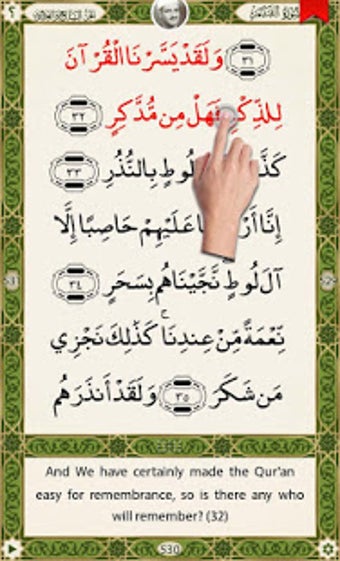 ٣١ وَلَقَدْ يَسَّرْنَا الْقُرْآنَ
لِلذِّكْرِ فَهَلْ مِن مُّدَّكِرٍ ٣٢
لُوطٍ بِالنُّذُرِ ٣٣
إِنَّا عَلَيْهِمْ حَاصِبًا إِلَّا
آلَ لُوطٍ نَّجَّيْنَاهُم بِسَحَرٍ ٣٤
نِعْمَةً مِّنْ عِندِنَا كَذَٰلِكَ نَجْزِي
مَن شَكَرَ ٣٥ وَلَقَدْ أَنذَرَهُم
And We have certainly made the Qur'an
easy for remembrance, so is there any who
will remember? (32)
530